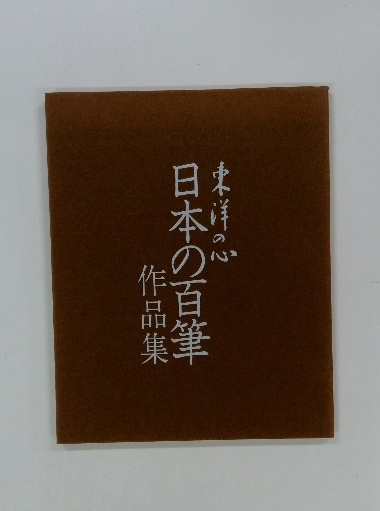 東洋の心
日本の百筆
作品集